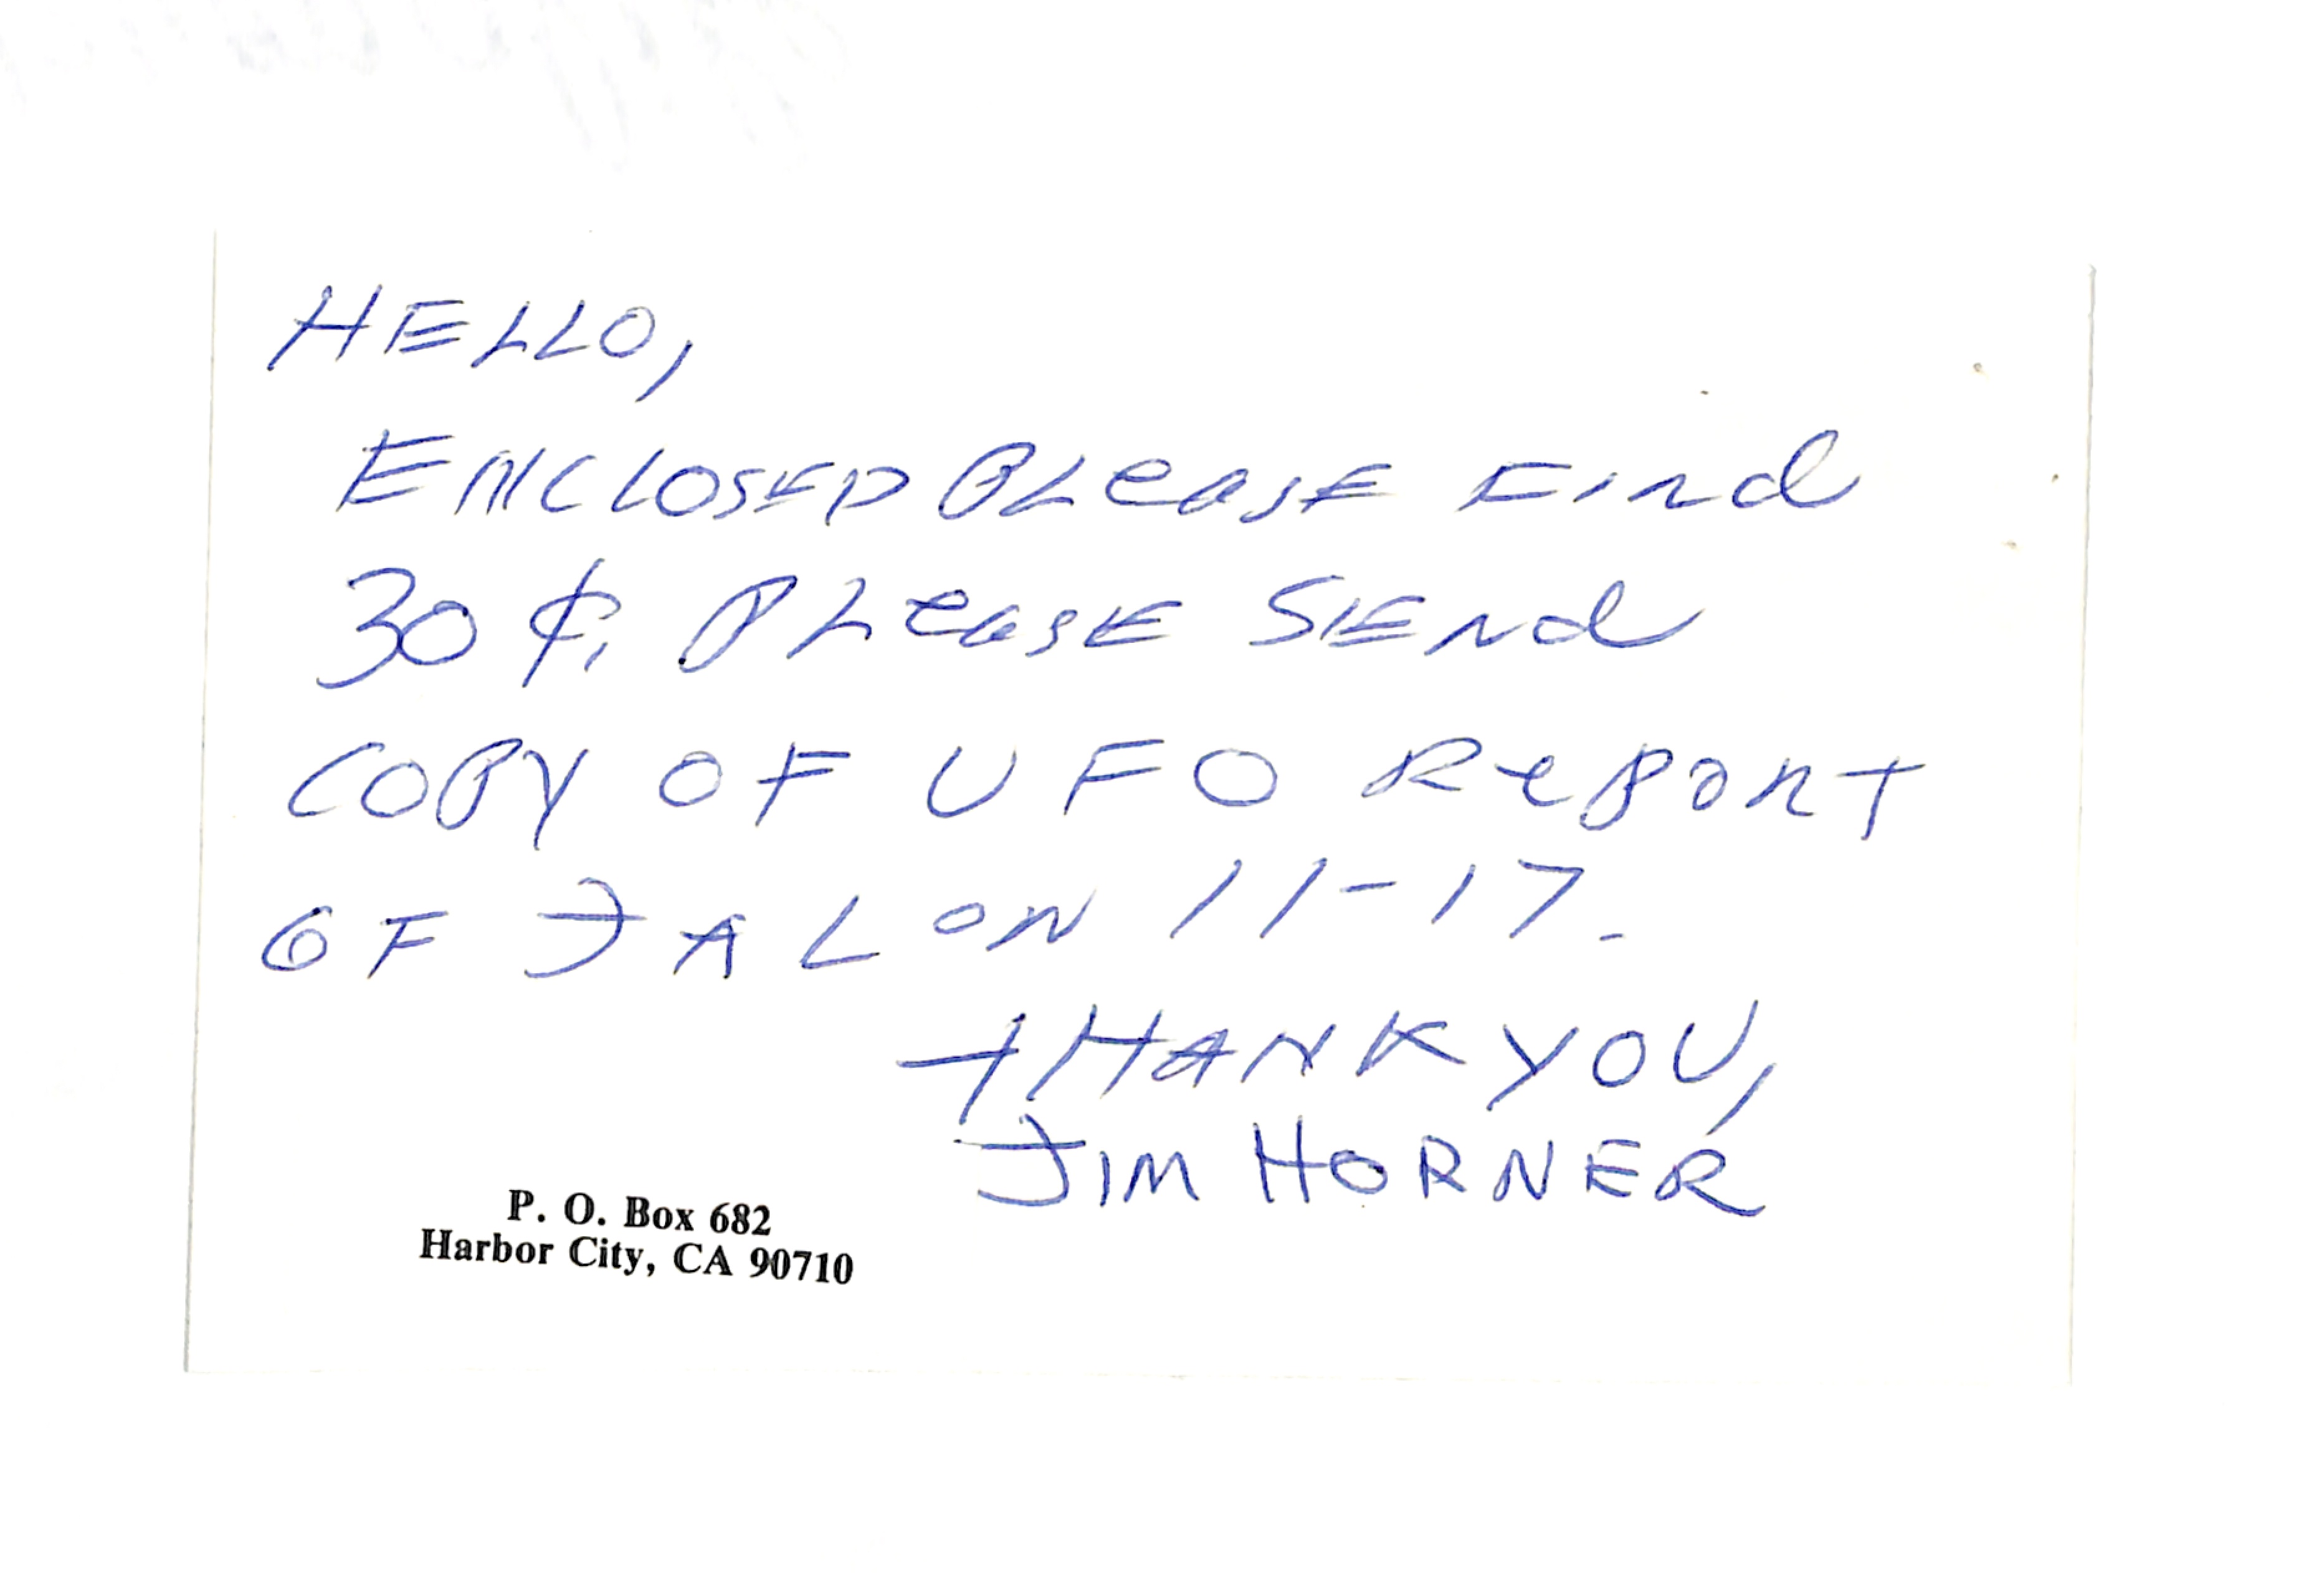 HELLO,
ENCLOSED PLeASE Find
30¢, PLeASE SENd
COPY OF UFO RePORT
OF JAL ON 11-17.
THANK YOU,
JIM HORNER
P. O. Box 682
Harbor City, CA 90710